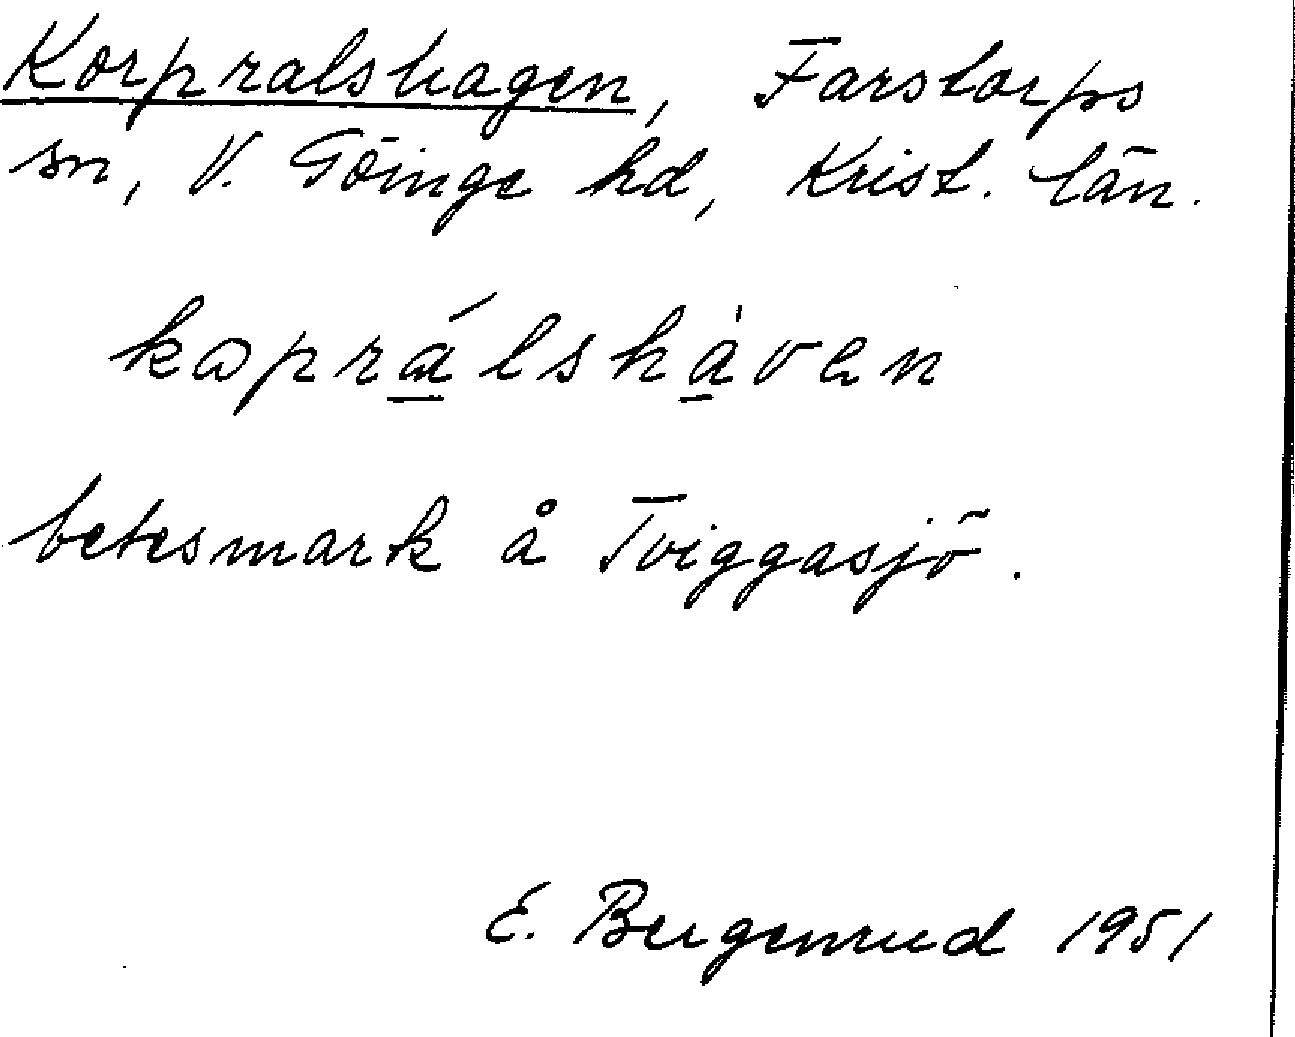 Korpralshagen, Farstorps
sn, V. Göinge hd, Krist. län.
kaprálshàven
betesmark å Tviggasjö.
E. Bergenrud 1951